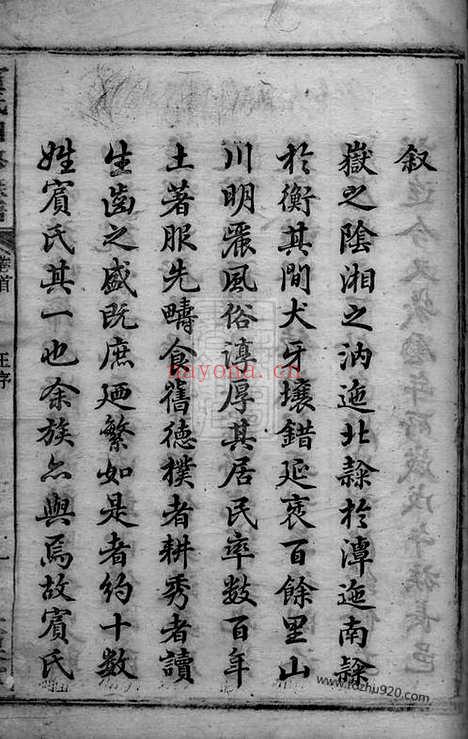 叙
嶽之陰湘之汭迤北隸於潭迤南隸
於衡其間犬牙壤錯延袤百餘里山
川明麗風俗湻厚其居民率數百年
土著服先疇食舊德樸者耕秀者讀
生齒之盛既庶廼繁如是者約十數
姓賓氏其一也余族亦與焉故賓氏
卷首
王序
nayona.cn
www.fozhu920.com